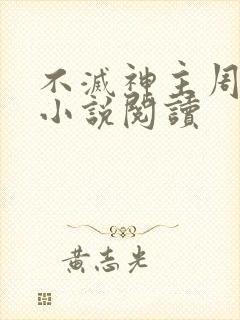 不滅神主周
小說閱讀
黃志光